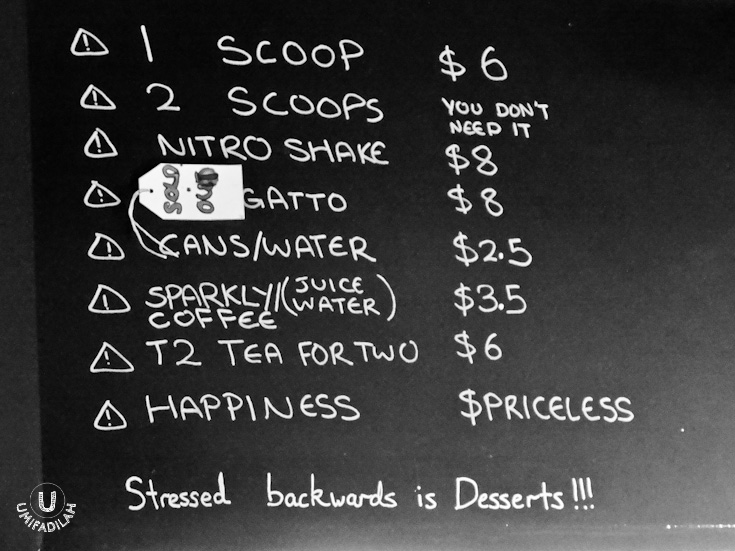 1 SCOOP $6
2 SCOOPS YOU DON'T
NEED IT
NITRO SHAKE $8
SOLD
OUT
GATTO $8
CANS/WATER $2.5
SPARKLY/(JUICE
WATER) $3.5
COFFEE
T2 TEA FOR TWO $6
HAPPINESS $PRICELESS
Stressed backwards is Desserts!!!
U
UMIFADILAH